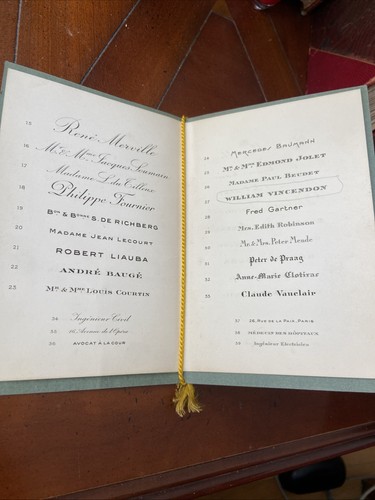 15 René Merville
16 Mr & Mme Jacques Soumain
17 Madame L. du Tilleux
18 Philippe Fournier
19 Bon & Bonne S. de Richberg
20 Madame Jean Lecourt
21 ROBERT LIAUBA
22 ANDRÉ BAUGÉ
23 Mr & Mme Louis Courtin
34 Ingénieur Civil
35 26, Avenue de l'Opéra
36 AVOCAT À LA COUR
24 MERCEDES BAUMANN
25 Mr & Mme EDMOND JOLET
26 MADAME PAUL BEUDET
27 WILLIAM VINCENDON
Fred Gartner
Mrs. Edith Robinson
Mr. & Mrs. Peter Meade
31 Peter de Praag
32 Anne-Marie Clotirac
33 Claude Vauclair
37 28, Rue de la Paix, Paris
38 MÉDECIN DES HÔPITAUX
39 Ingénieur Électricien